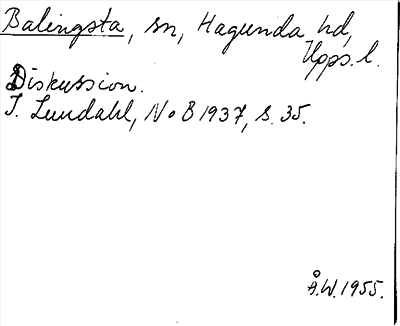 Balingsta, sn, Hagunda hd,
Upps. l.
Diskussion.
I. Lundahl, NoB 1937, s. 35.
Å.W. 1955.